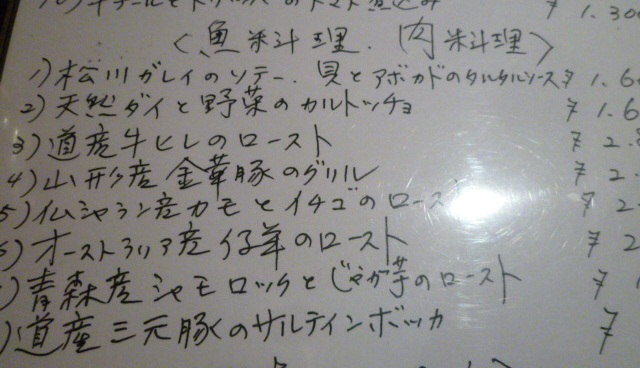 トマト煮込み ¥ 1.300
〈魚料理. 肉料理〉
1) 松川ガレイのソテー. 貝とアボカドのタルタルソース ¥ 1.6
2) 天然ダイと野菜のカルトッチョ ¥ 1.6
3) 道産牛ヒレのロースト ¥ 2.
4) 山形産金華豚のグリル ¥ 2.
5) 仏シャラン産カモとイチゴのロースト ¥ 2
6) オーストラリア産仔羊のロースト ¥ 2
) 青森産シャモロックとじゃが芋のロースト ¥
) 道産三元豚のサルティンボッカ ¥